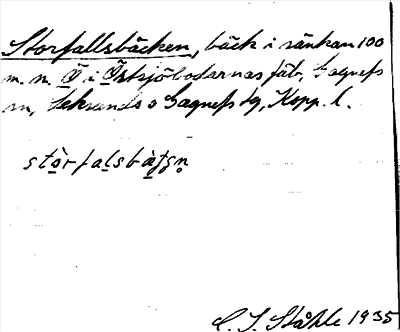 Storfallsbäcken, bäck i sänkan 100
m. n. Ö i Östsjöbodarnas fäb, Gagnefs
sn, Leksands o Gagnefs tg, Kopp. l.
C. I. Ståhle 1935